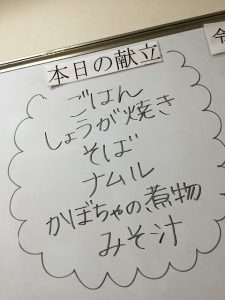 本日の献立
ごはん
しょうが焼き
そば
ナムル
かぼちゃの煮物
みそ汁